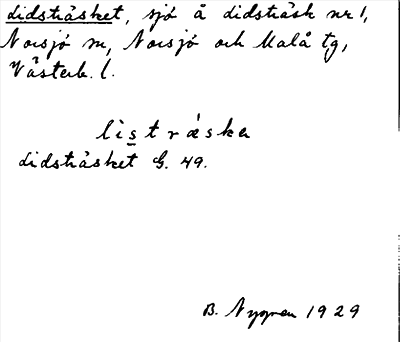 Lidsträsket, sjö å Lidsträsk nr 1,
Norsjö sn, Norsjö och Malå tg,
Västerb. l.
listrǻska
Lidsträsket G. 49.
B. Nygren 1929